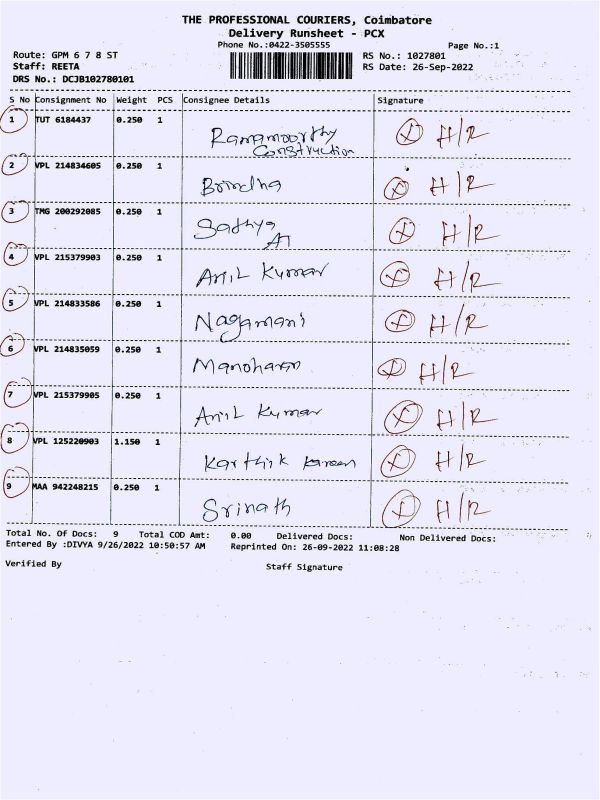 THE PROFESSIONAL COURIERS, Coimbatore
Delivery Runsheet - PCX
Phone No.:0422-3505555
Page No.:1
Route: GPM 6 7 8 ST
RS No.: 1027801
Staff: REETA
RS Date: 26-Sep-2022
DRS No.: DCJB102780101
S No Consignment No Weight PCS Consignee Details Signature
1 TUT 6184437 0.250 1
Ramamoorthy Construction H/R
2 VPL 214834605 0.250 1
Brindha H/R
3 TMG 200292085 0.250 1
Sathya A H/R
4 VPL 215379903 0.250 1
Anil Kumar H/R
5 VPL 214833586 0.250 1
Nagamani H/R
6 VPL 214835059 0.250 1
Manoharan H/R
7 VPL 215379905 0.250 1
Anil Kumar H/R
8 VPL 125220903 1.150 1
Karthik H/R
9 MAA 942248215 0.250 1
Srinath H/R
Total No. Of Docs: 9 Total COD Amt: 0.00 Delivered Docs: Non Delivered Docs:
Entered By :DIVYA 9/26/2022 10:50:57 AM Reprinted On: 26-09-2022 11:08:28
Verified By
Staff Signature